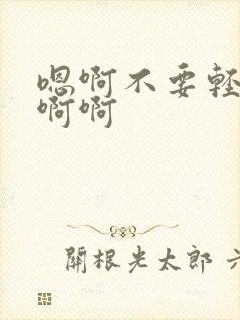 嗯啊不要輕
啊啊
關根光太郎 六